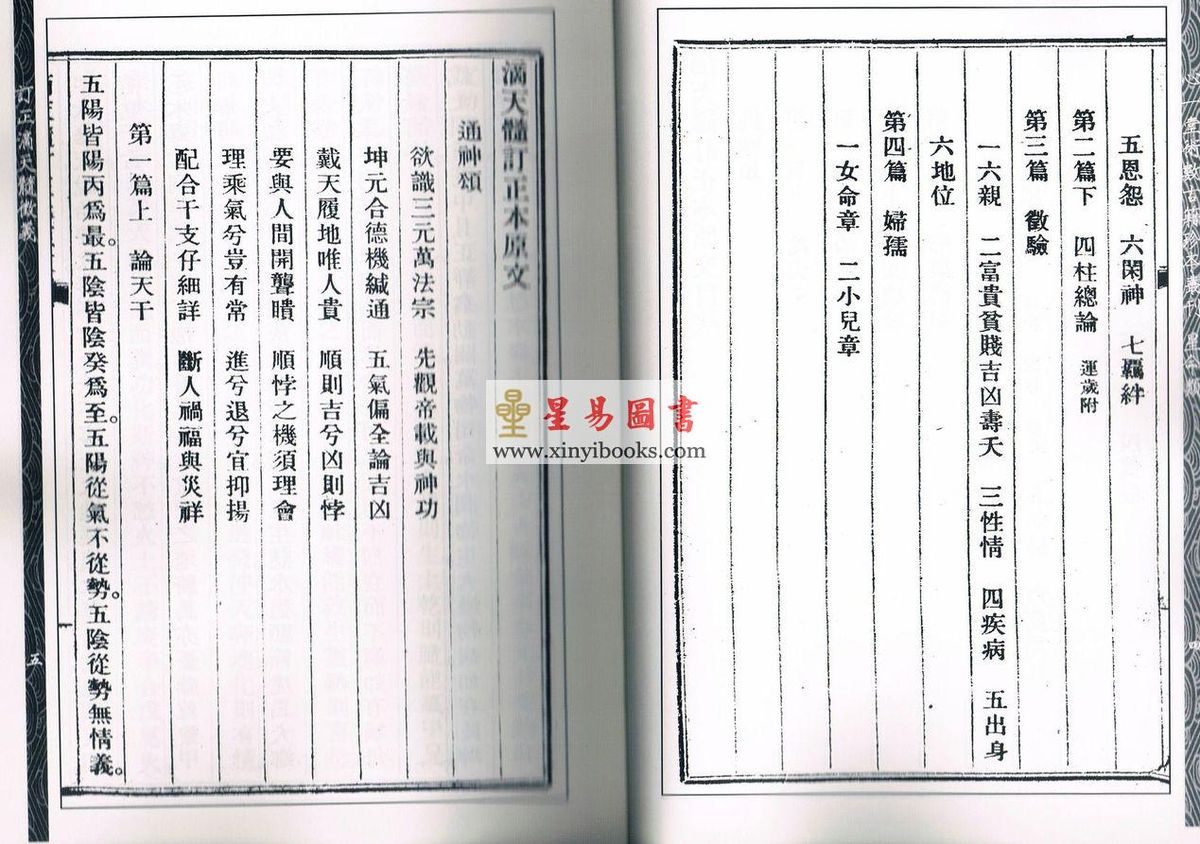 五恩怨　六閑神　七羈絆
第二篇下　四柱總論　運歲附
第三篇　徵驗
一六親　二富貴貧賤吉凶壽夭　三性情　四疾病　五出身
六地位
第四篇　婦孺
一女命章　二小兒章
滴天髓訂正本原文
通神頌
欲識三元萬法宗　先觀帝載與神功
坤元合德機緘通　五氣偏全論吉凶
戴天履地唯人貴　順則吉兮凶則悖
要與人間開聾聵　順悖之機須理會
理乘氣兮豈有常　進兮退兮宜抑揚
配合干支仔細詳　斷人禍福與災祥
第一篇上　論天干
五陽皆陽丙爲最。五陰皆陰癸爲至。五陽從氣不從勢。五陰從勢無情義。
訂正滴天髓徵義
五
星易圖書
www.xinyibooks.com